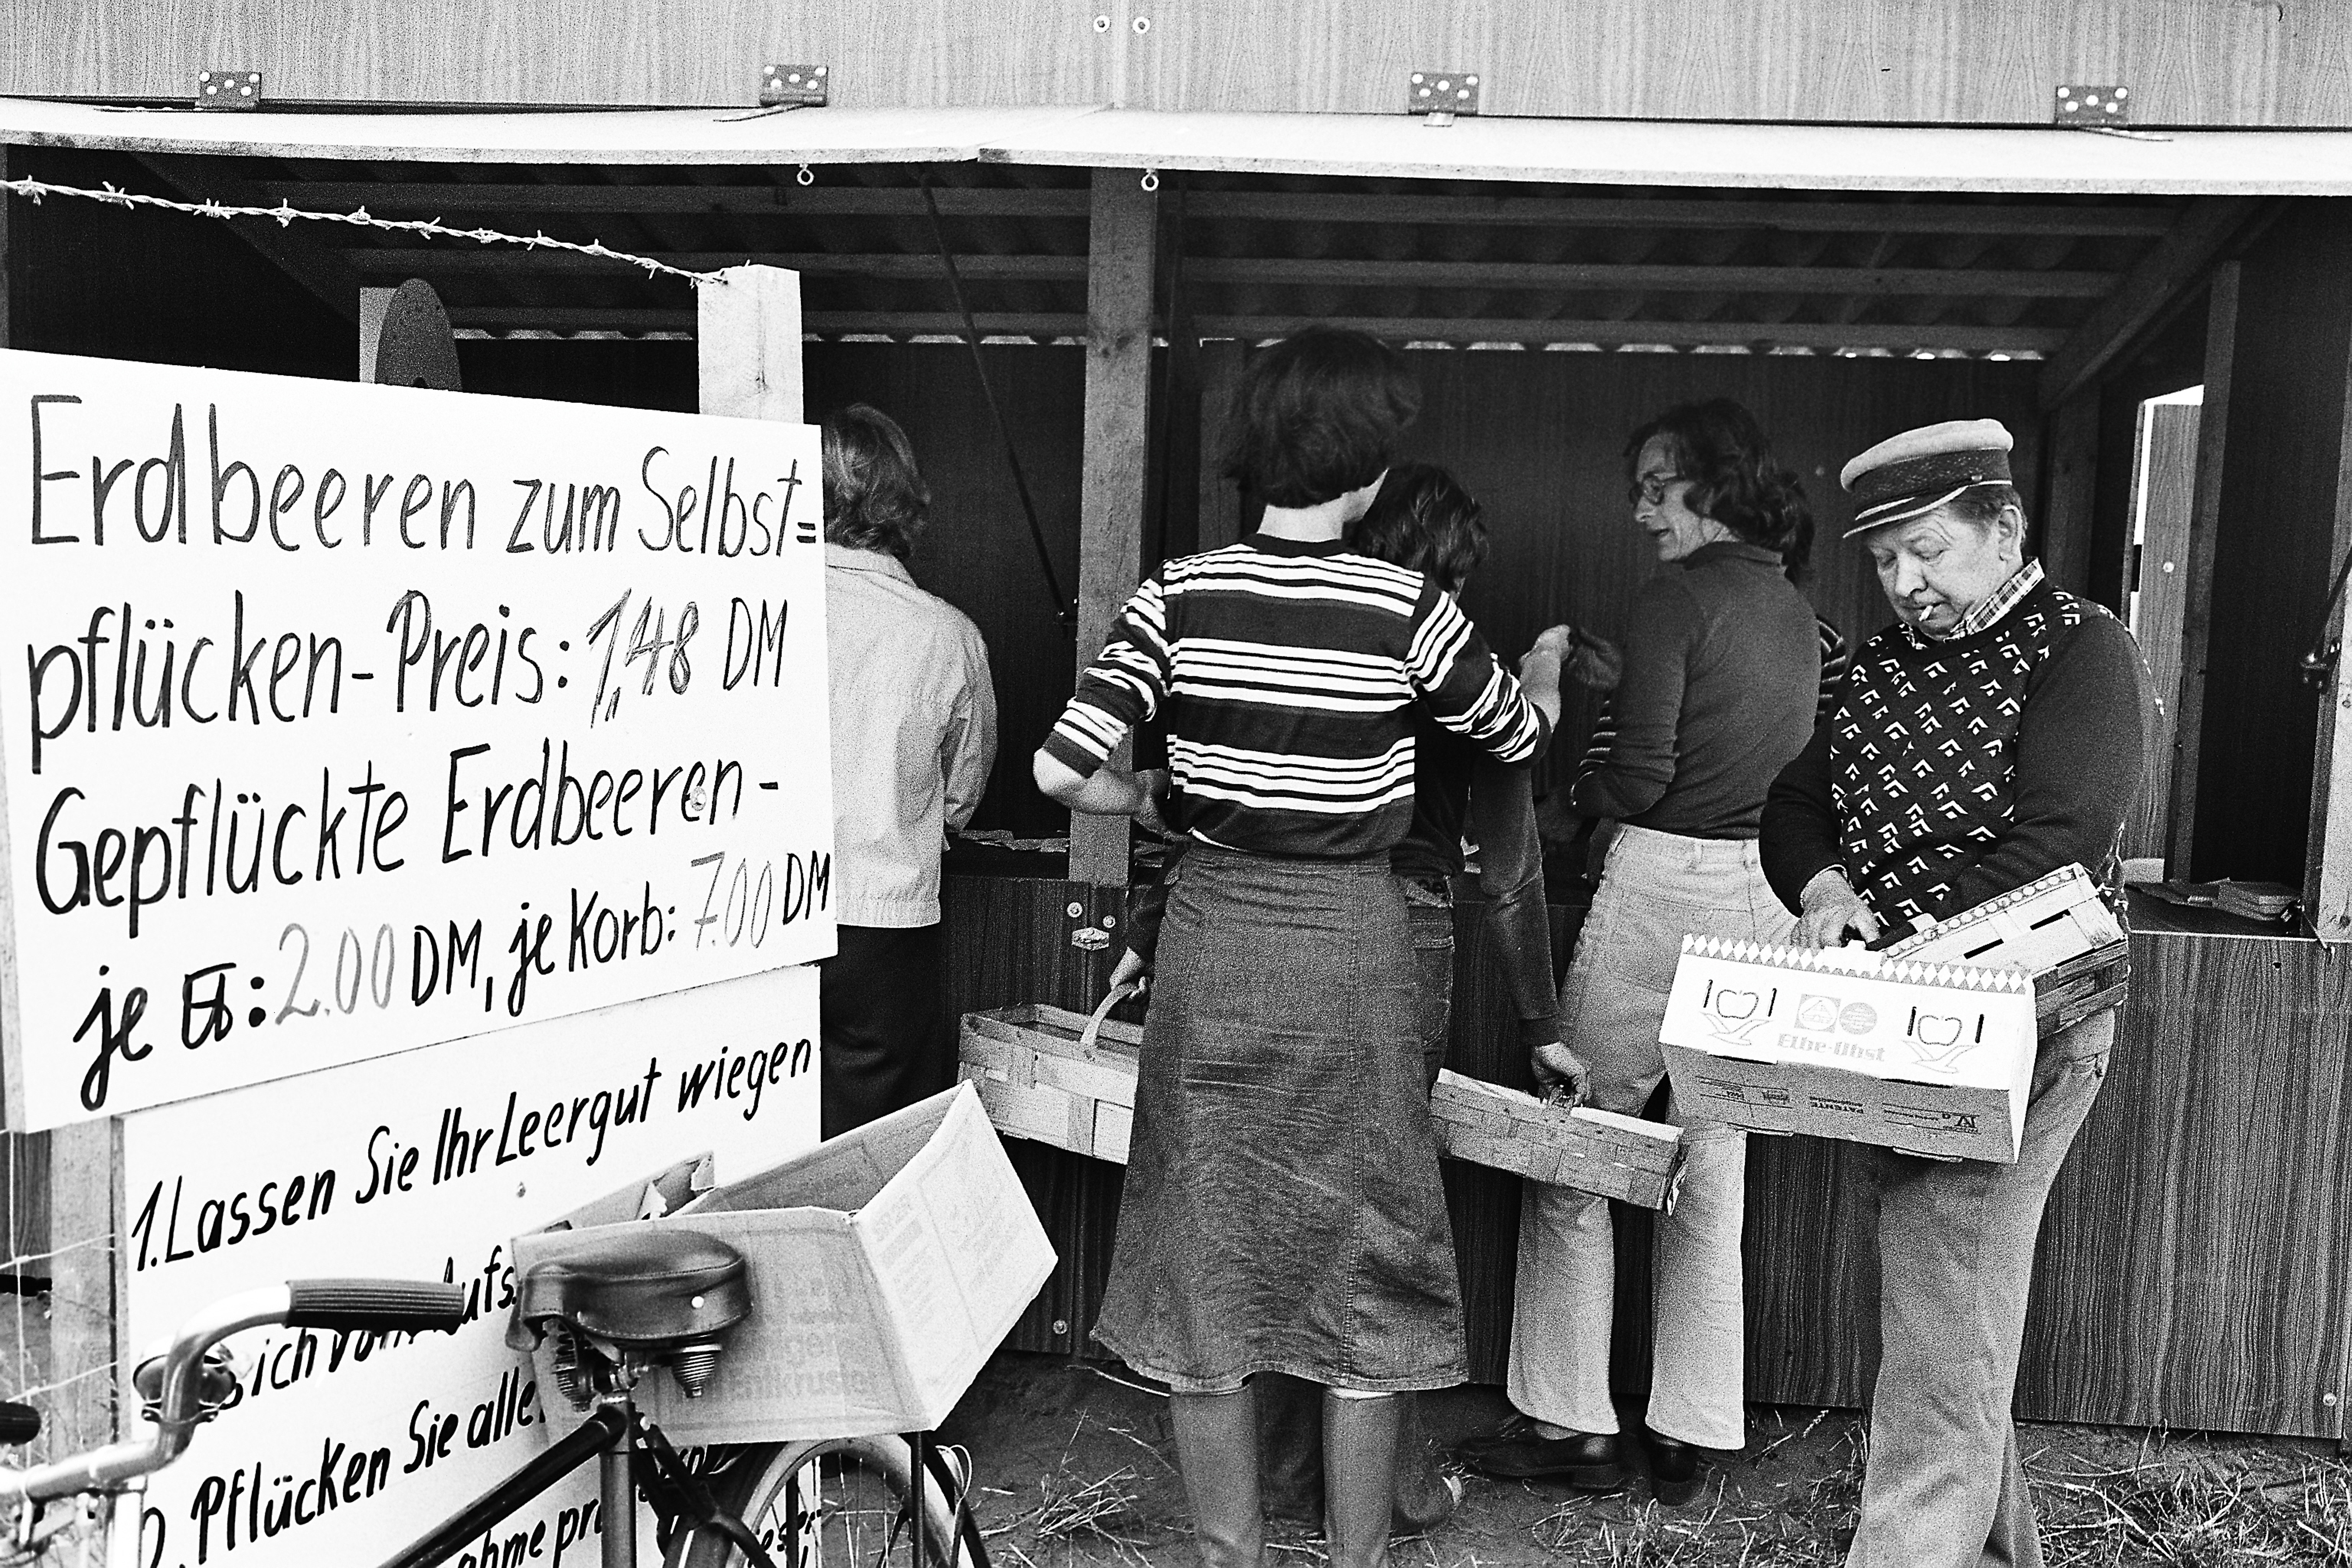 Erdbeeren zum Selbst=
pflücken-Preis: 1,48 DM
Gepflückte Erdbeeren-
je ℔: 2.00 DM, je Korb: 7.00 DM
1. Lassen Sie Ihr Leergut wiegen
sich vom Aufs
2. Pflücken Sie alle
ahme pr
Elbe-Obst
PATENTE
IV